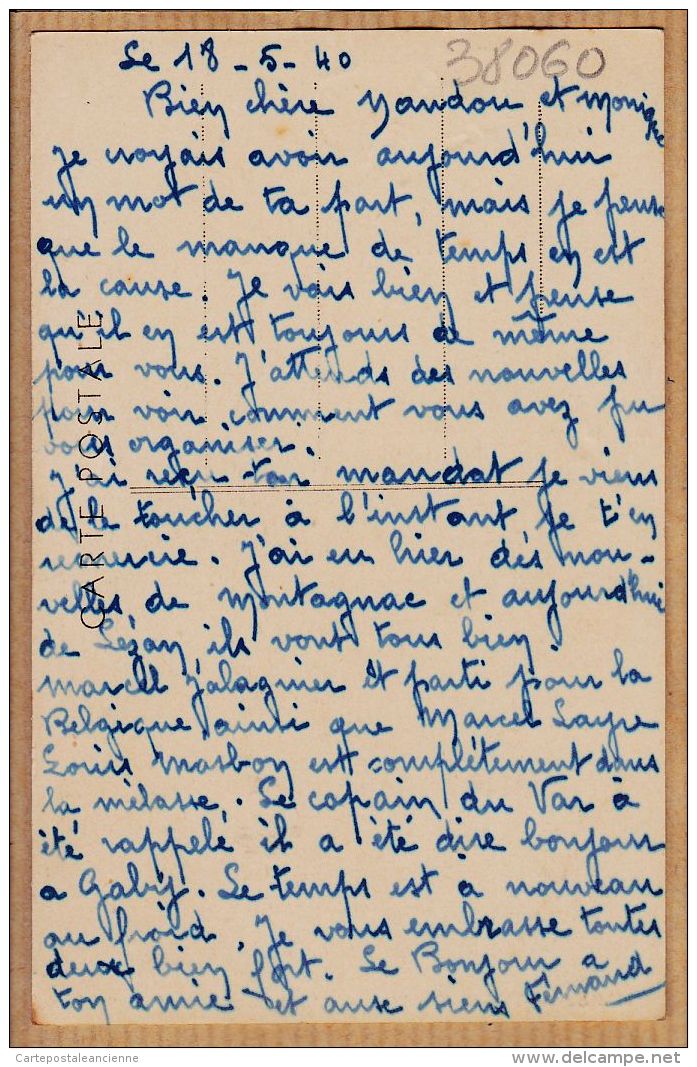 Le 18 - 5 - 40
38060
Bien chère Nandou et Monique
Je croyais avoir aujourd'hui
un mot de ta part, mais je pense
que le manque de temps en est
la cause. Je vais bien et pense
qu'il en est toujours de même
pour vous. J'attends des nouvelles
pour voir comment vous avez pu
vous organiser.
J'ai reçu ton mandat je viens
de le toucher à l'instant, je t'en
remercie. J'ai eu hier des nou-
velles de Montagnac et aujourd'hui
de Lézan, ils vont tous bien
Marcel Jalaguier et parti pour la
Belgique ainsi que Marcel Sayre
Louis Masbon est complétement dans
la mélasse. Le copain du Var à
été rappelé il a été dire bonjour
a Gaby. Le temps est à nouveau
au froid. Je vous embrasse toutes
deux bien fort. Le Bonjour a
ton amie et aux siens Fernand
CARTE POSTALE
Cartepostaleancienne
www.delcampe.net